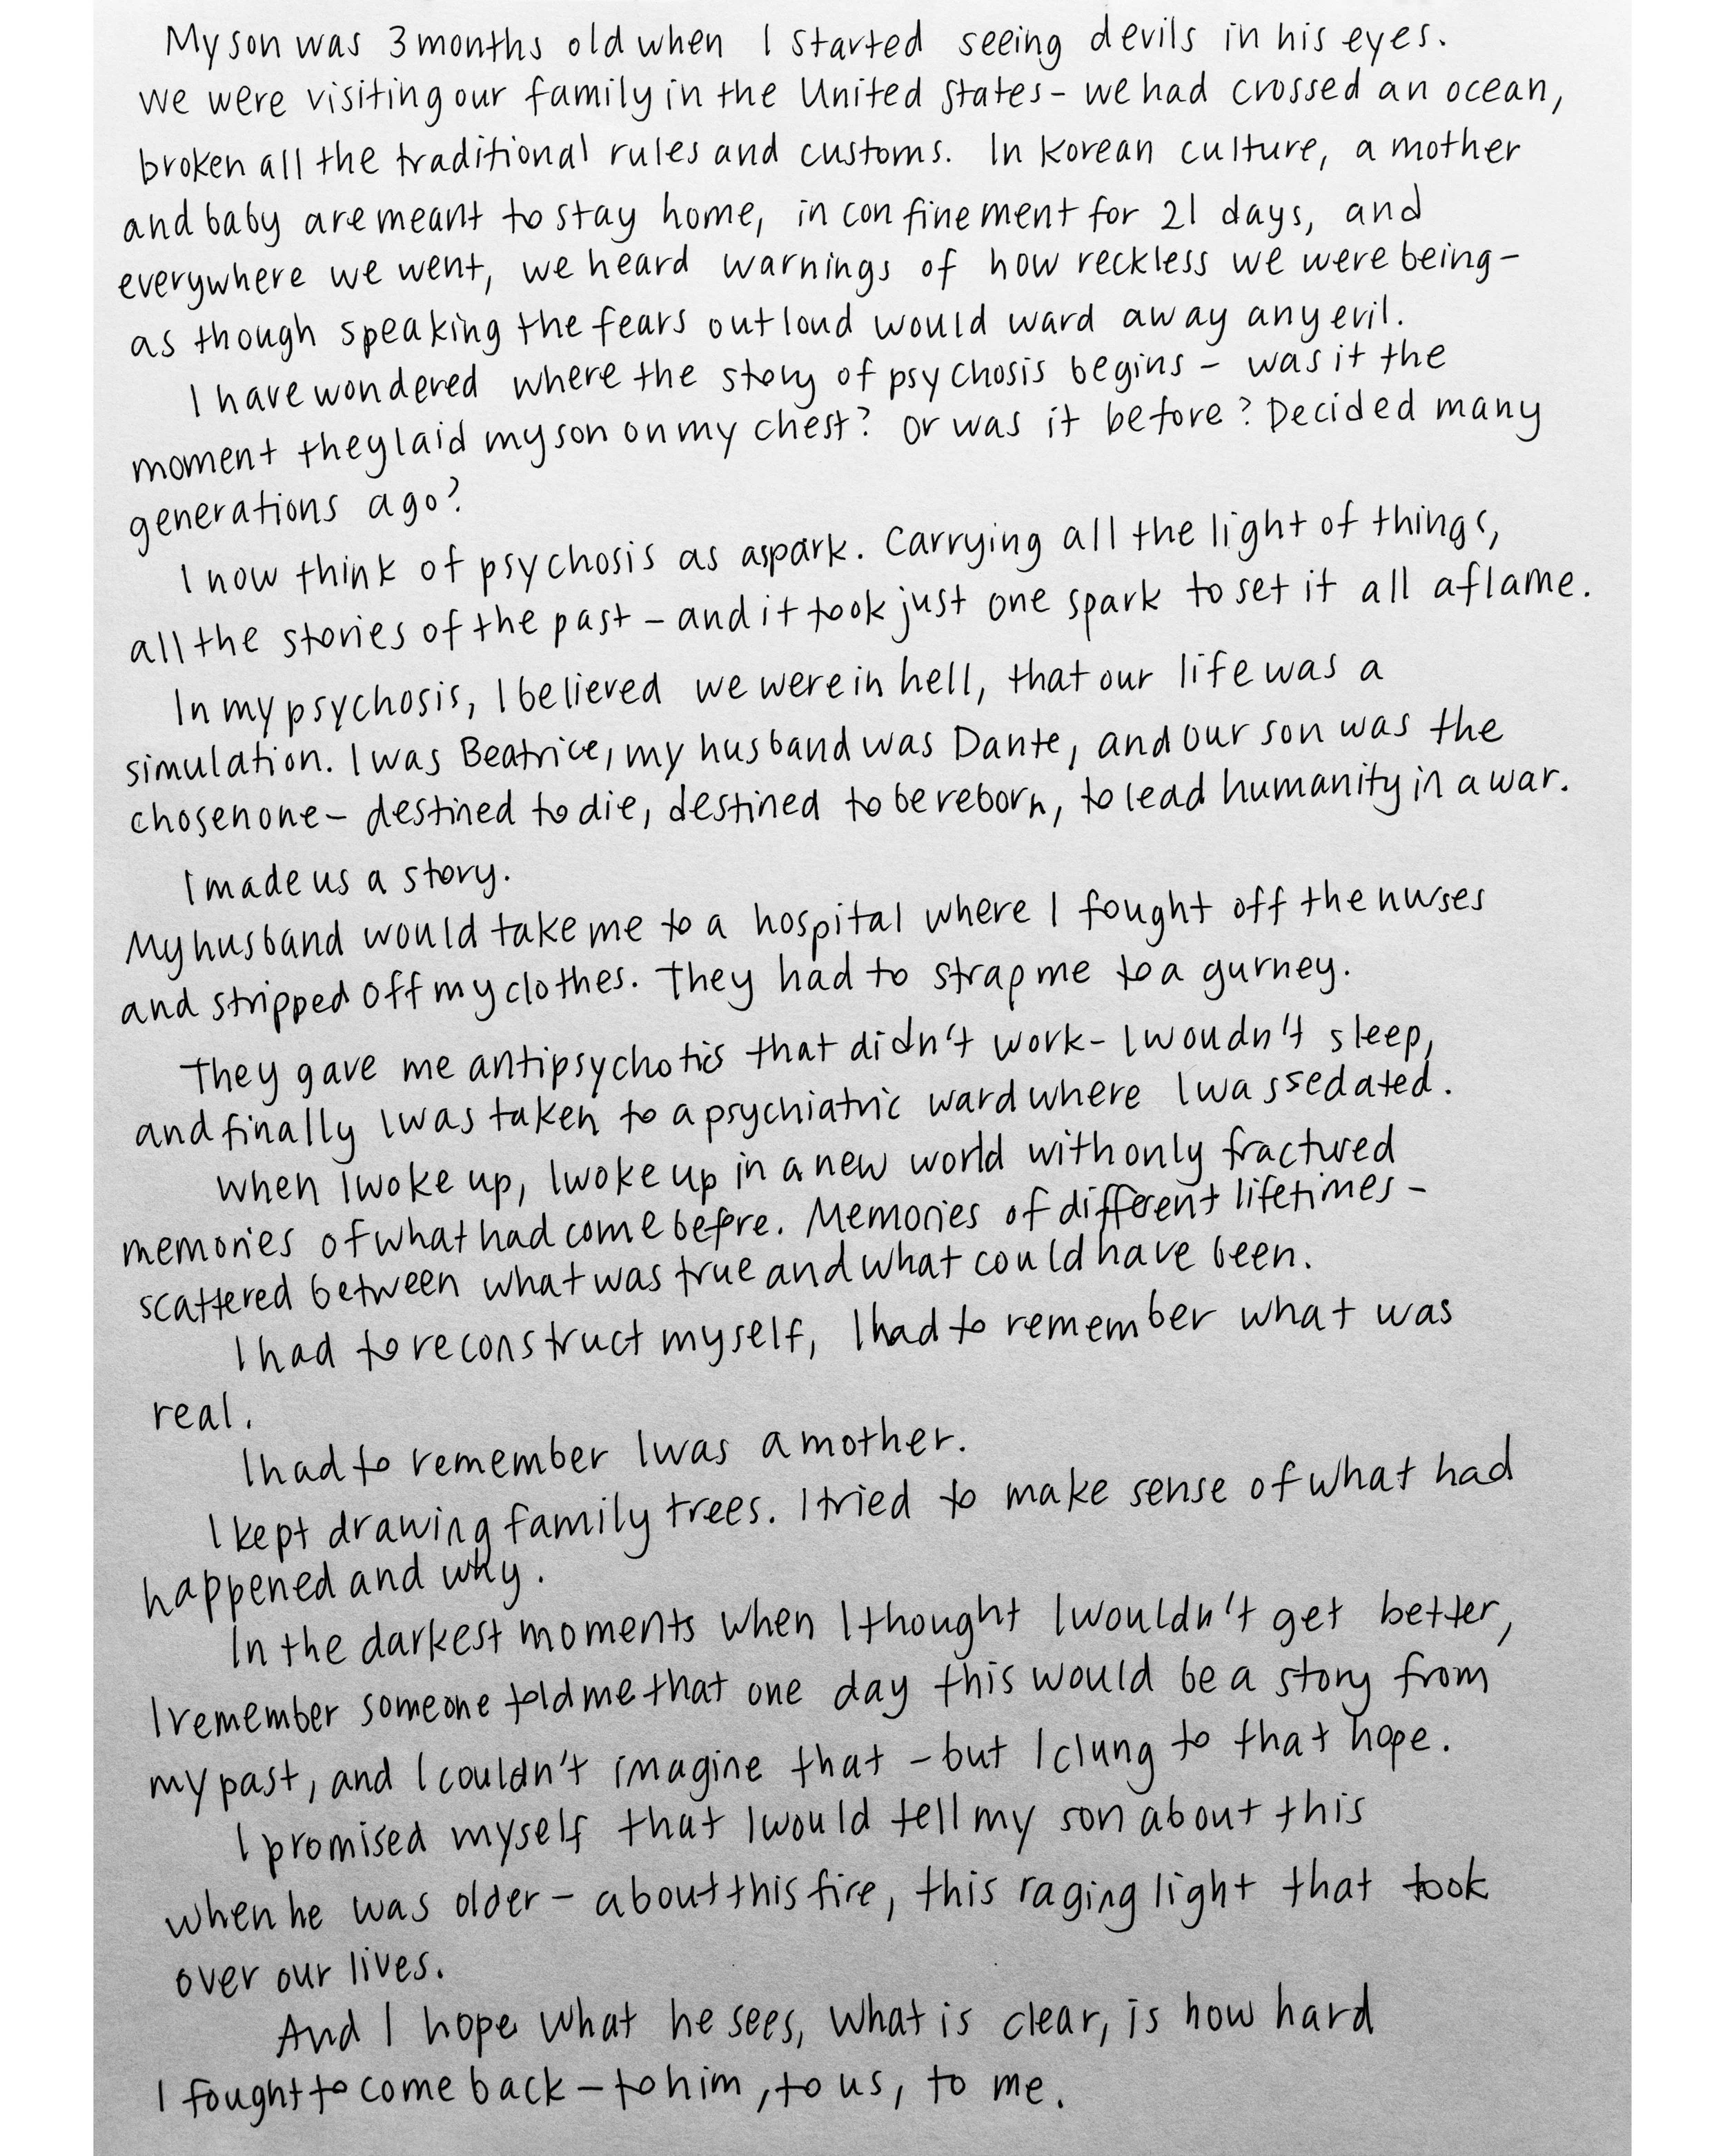 My son was 3 months old when I started seeing devils in his eyes.
We were visiting our family in the United States - we had crossed an ocean,
broken all the traditional rules and customs. In Korean culture, a mother
and baby are meant to stay home, in confinement for 21 days, and
everywhere we went, we heard warnings of how reckless we were being -
as though speaking the fears out loud would ward away any evil.
I have wondered where the story of psychosis begins - was it the
moment they laid my son on my chest? Or was it before? Decided many
generations ago?
I now think of psychosis as a spark. Carrying all the light of things,
all the stories of the past - and it took just one spark to set it all aflame.
In my psychosis, I believed we were in hell, that our life was a
simulation. I was Beatrice, my husband was Dante, and our son was the
chosen one - destined to die, destined to be reborn, to lead humanity in a war.
I made us a story.
My husband would take me to a hospital where I fought off the nurses
and stripped off my clothes. They had to strap me to a gurney.
They gave me antipsychotics that didn't work - I woudn't sleep,
and finally I was taken to a psychiatric ward where I was sedated.
When I woke up, I woke up in a new world with only fractured
memories of what had come befre. Memories of different lifetimes -
scattered between what was true and what could have been.
I had to reconstruct myself, I had to remember what was
real.
I had to remember I was a mother.
I kept drawing family trees. I tried to make sense of what had
happened and why.
In the darkest moments when I thought I wouldn't get better,
I remember someone told me that one day this would be a story from
my past, and I couldn't imagine that - but I clung to that hope.
I promised myself that I would tell my son about this
when he was older - about this fire, this raging light that took
over our lives.
And I hope what he sees, what is clear, is how hard
I fought to come back - to him, to us, to me.